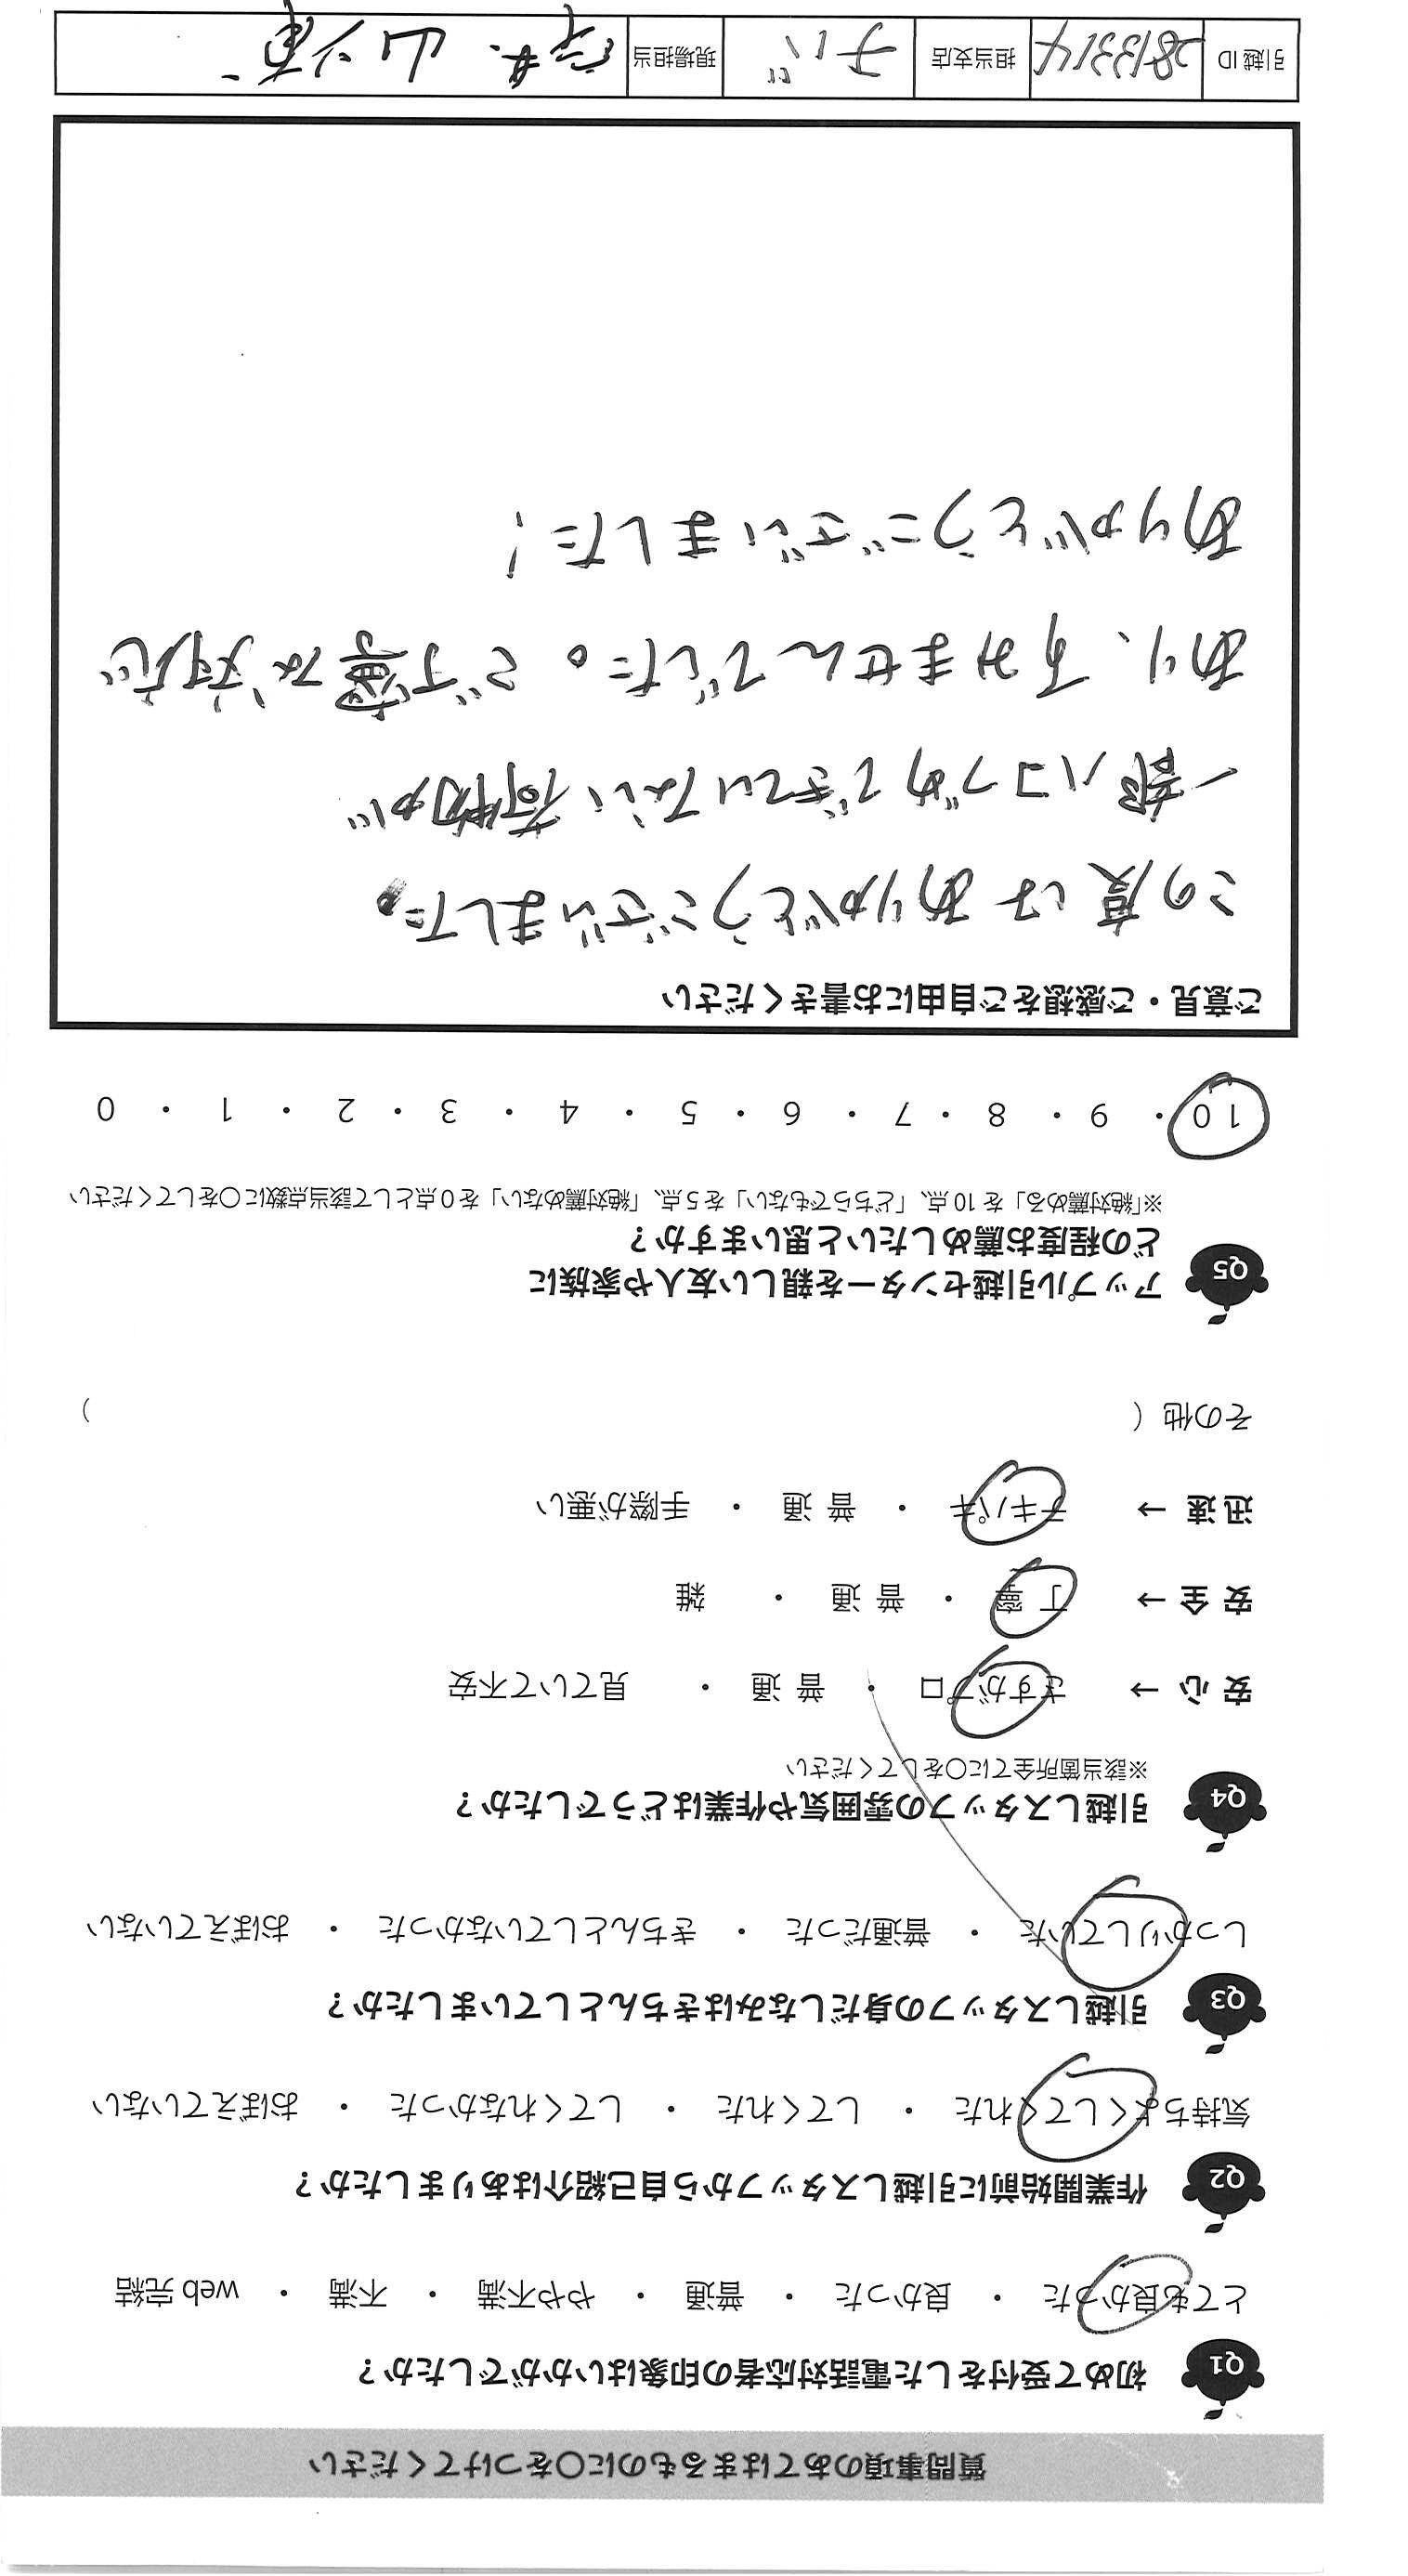 質問事項のあてはまるものに〇をつけてください
Q1 初めて受付をした電話対応者の印象はいかがでしたか？
とても良かった ・ 良かった ・ 普通 ・ やや不満 ・ 不満 ・ web 完結
Q2 作業開始前に引越しスタッフから自己紹介はありましたか？
気持ちよくしてくれた ・ してくれた ・ してくれなかった ・ おぼえていない
Q3 引越しスタッフの身だしなみはきちんとしていましたか？
しっかりしていた ・ 普通だった ・ きちんとしていなかった ・ おぼえていない
Q4 引越しスタッフの雰囲気や作業はどうでしたか？
※該当箇所全てに〇をしてください
安心 → さすがプロ ・ 普通 ・ 見ていて不安
安全 → 丁寧 ・ 普通 ・ 雑
迅速 → テキパキ ・ 普通 ・ 手際が悪い
その他（ ）
Q5 アップル引越センターを親しい友人や家族に
どの程度お薦めしたいと思いますか？
※「絶対薦める」を 10 点、「どちらでもない」を 5 点、「絶対薦めない」を 0 点として該当点数に〇をしてください
10 ・ 9 ・ 8 ・ 7 ・ 6 ・ 5 ・ 4 ・ 3 ・ 2 ・ 1 ・ 0
ご意見・ご感想をご自由にお書きください
この度はありがとうございました。
一部ハコづめできていない荷物が
あり、すみませんでした。ご丁寧な対応
ありがとうございました！
引越 ID 2813314 担当支店 チバ 現場担当